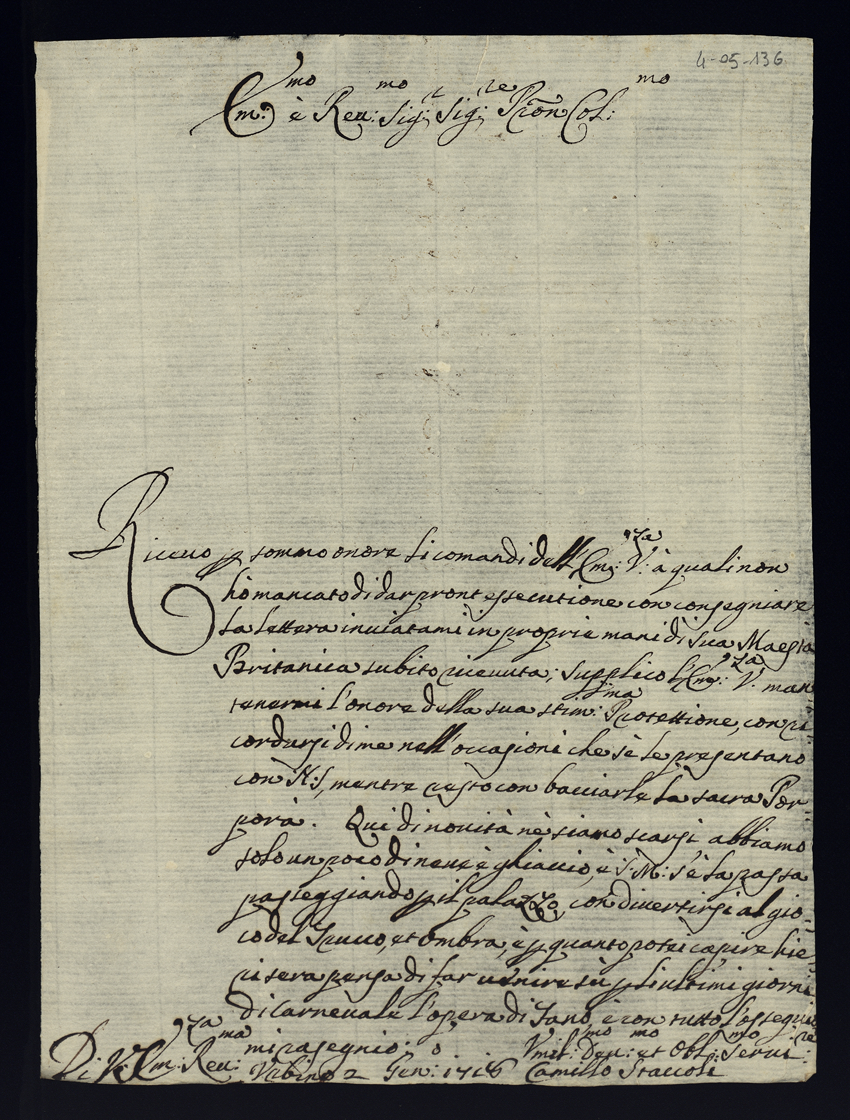 4-05-136
Em:mo è Reu:mo Sig:r Sig:re Pron Col:mo
Riceuo p sommo onore li comandi dell'Em:za V: à quali non
hò mancato di dar pront essecutione con consegniare
la lettera inuiatami in proprie mani di sua Maestà
Britanica subito riceuuta; supplico l'Em:za V. man
tenermi l'onore della sua stim:ssima Protettione, con ri
cordarsi di me nell'occasioni che sè le presentano
con N:S, mentre resto con bacciarle la sacra Por
pora. Qui di nouità nè siamo scarsi abbiamo
solo un poco di neue è ghiaccio, è S: M: s'è la passa
passeggiando p il palazzo, con divertirsi al gio-
co del Trucco, et ombra, è p quanto potei capire hie-
ri sera pensa di far uenire sù p li ultimi giorni
di carneuale l'opera di Fano è con tutto l'ossequio
mi rasegnio: o
Di V: Em:za Reu:ma
Vrbino 2 Gen: 1718
Vmil:mo Deu:mo et Obl:mo Serui:re
Camillo Staccoli